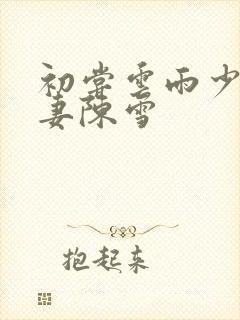 初尝云雨少
妻陈雪
抱起来